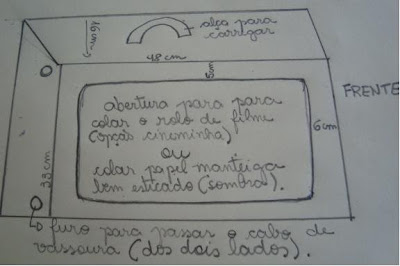 alça para
carregar
16cm
48cm
5cm
FRENTE
abertura para para
colar o rolo de filme
(opção cineminha)
ou
colar papel manteiga
bem esticado (sombra).
6cm
33cm
furo para passar o cabo de
vassoura (dos dois lados).